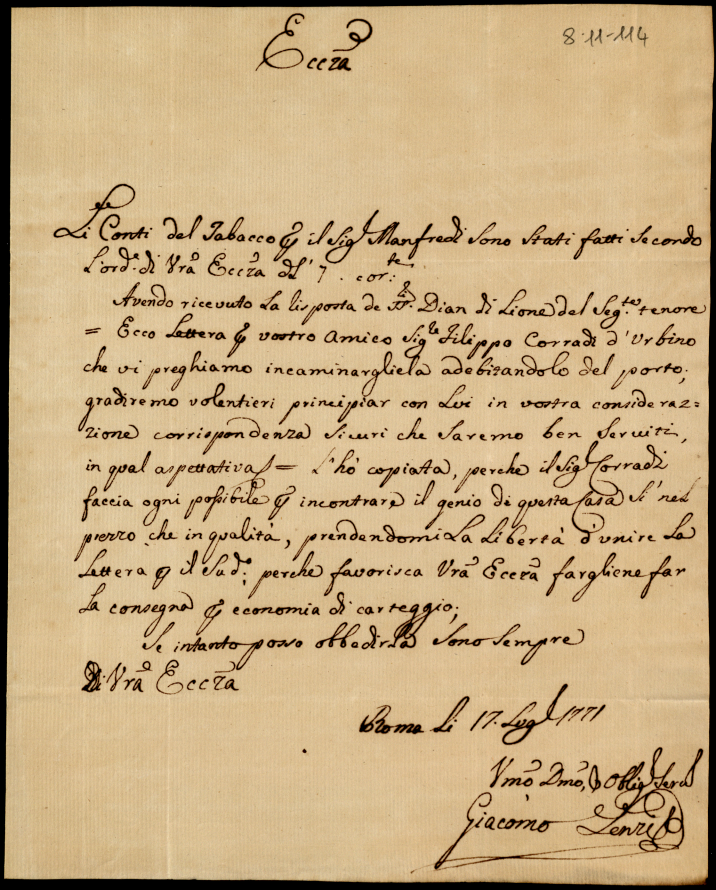 8-11-114
Eccza
Li Conti del Tabacco p il Sigr Manfredi sono stati fatti secondo
L'ord.e di Vra Eccza del 7. corte:
Avendo ricevuto La risposta de Dian di Lione del Segte tenore
= Ecco Lettera p vostro amico Sigre Filippo Corradi d'Urbino
che vi preghiamo incaminargliela adebitandolo del porto;
gradiremo volentieri principiar con Lui in vostra consideraz=
zione corrispondenza sicuri che saremo ben serviti,
in qual aspettativa = L'hò copiata, perche il Sigr Corradi
faccia ogni possibile p incontrare il genio di questa Casa sì nel
prezzo che in qualità, prendendomi La Libertà d'unire La
Lettera p il Sud.o: perche favorisca Vra Eccza fargliene far
La consegna p economia di carteggio;
Se intanto posso obbedirLa sono sempre
Di Vra Eccza
Roma Li 17. Lugl 1771
Vmo Dmo, Oblig Serv
Giacomo Lenzi